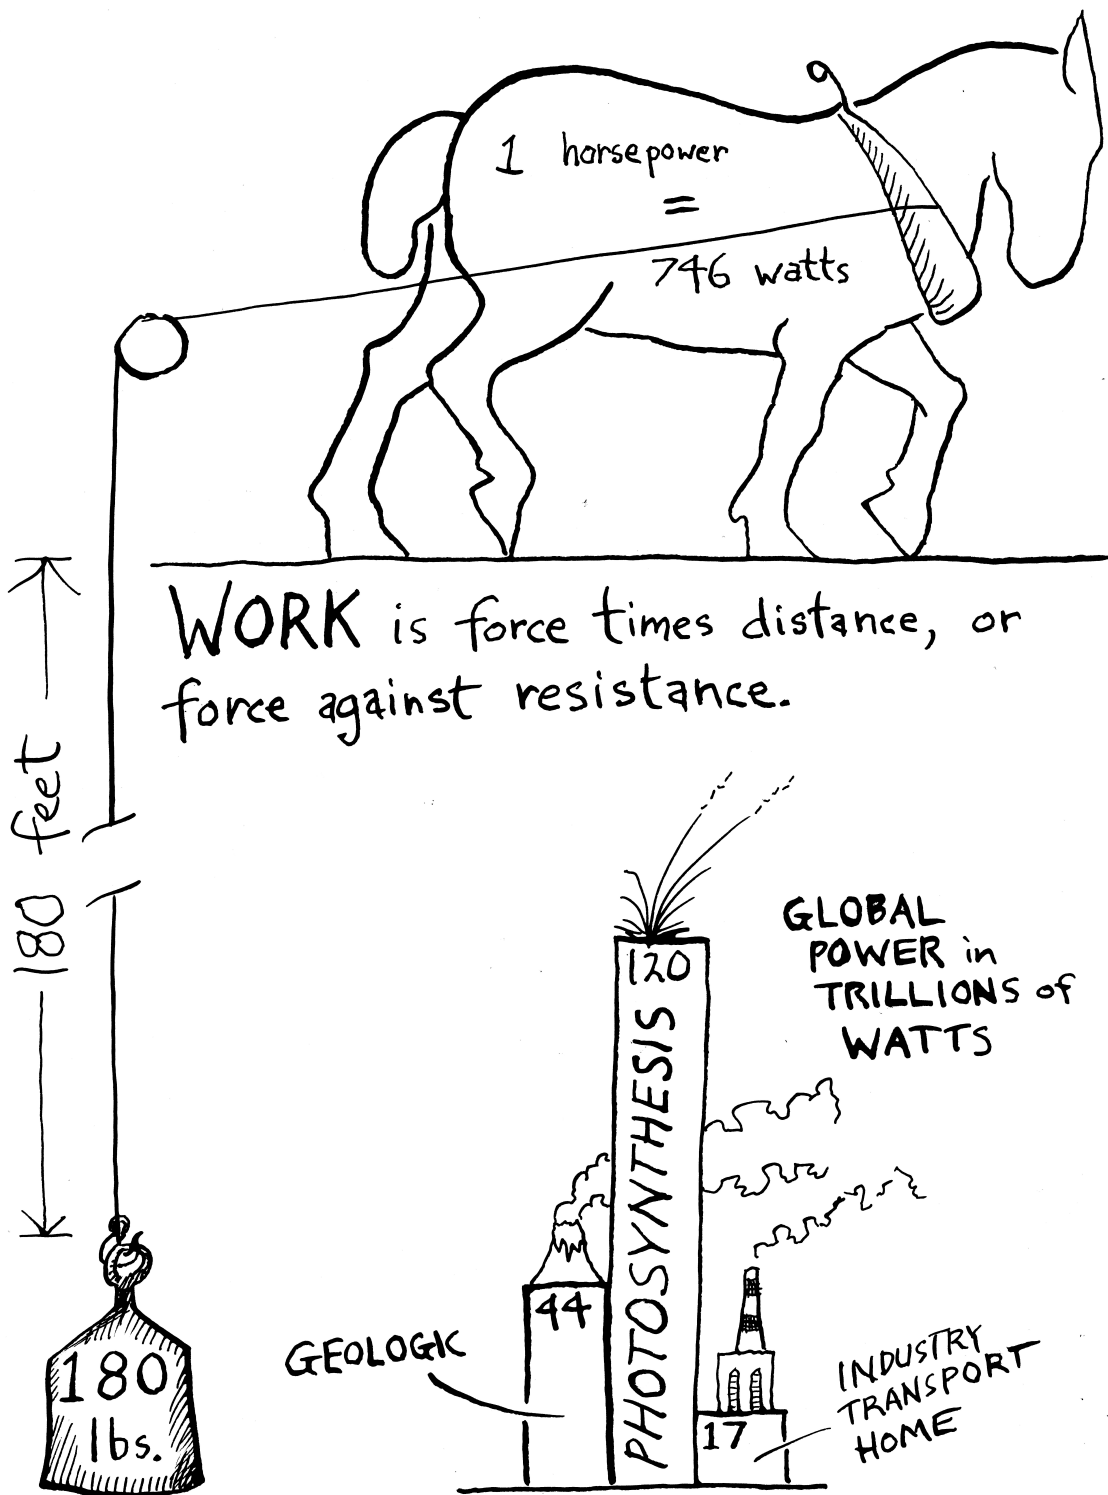 1 horsepower
=
746 watts
WORK is force times distance, or
force against resistance.
180 feet
180
lbs.
GLOBAL
POWER in
TRILLIONS of
WATTS
120
PHOTOSYNTHESIS
44
GEOLOGIC
17
INDUSTRY
TRANSPORT
HOME